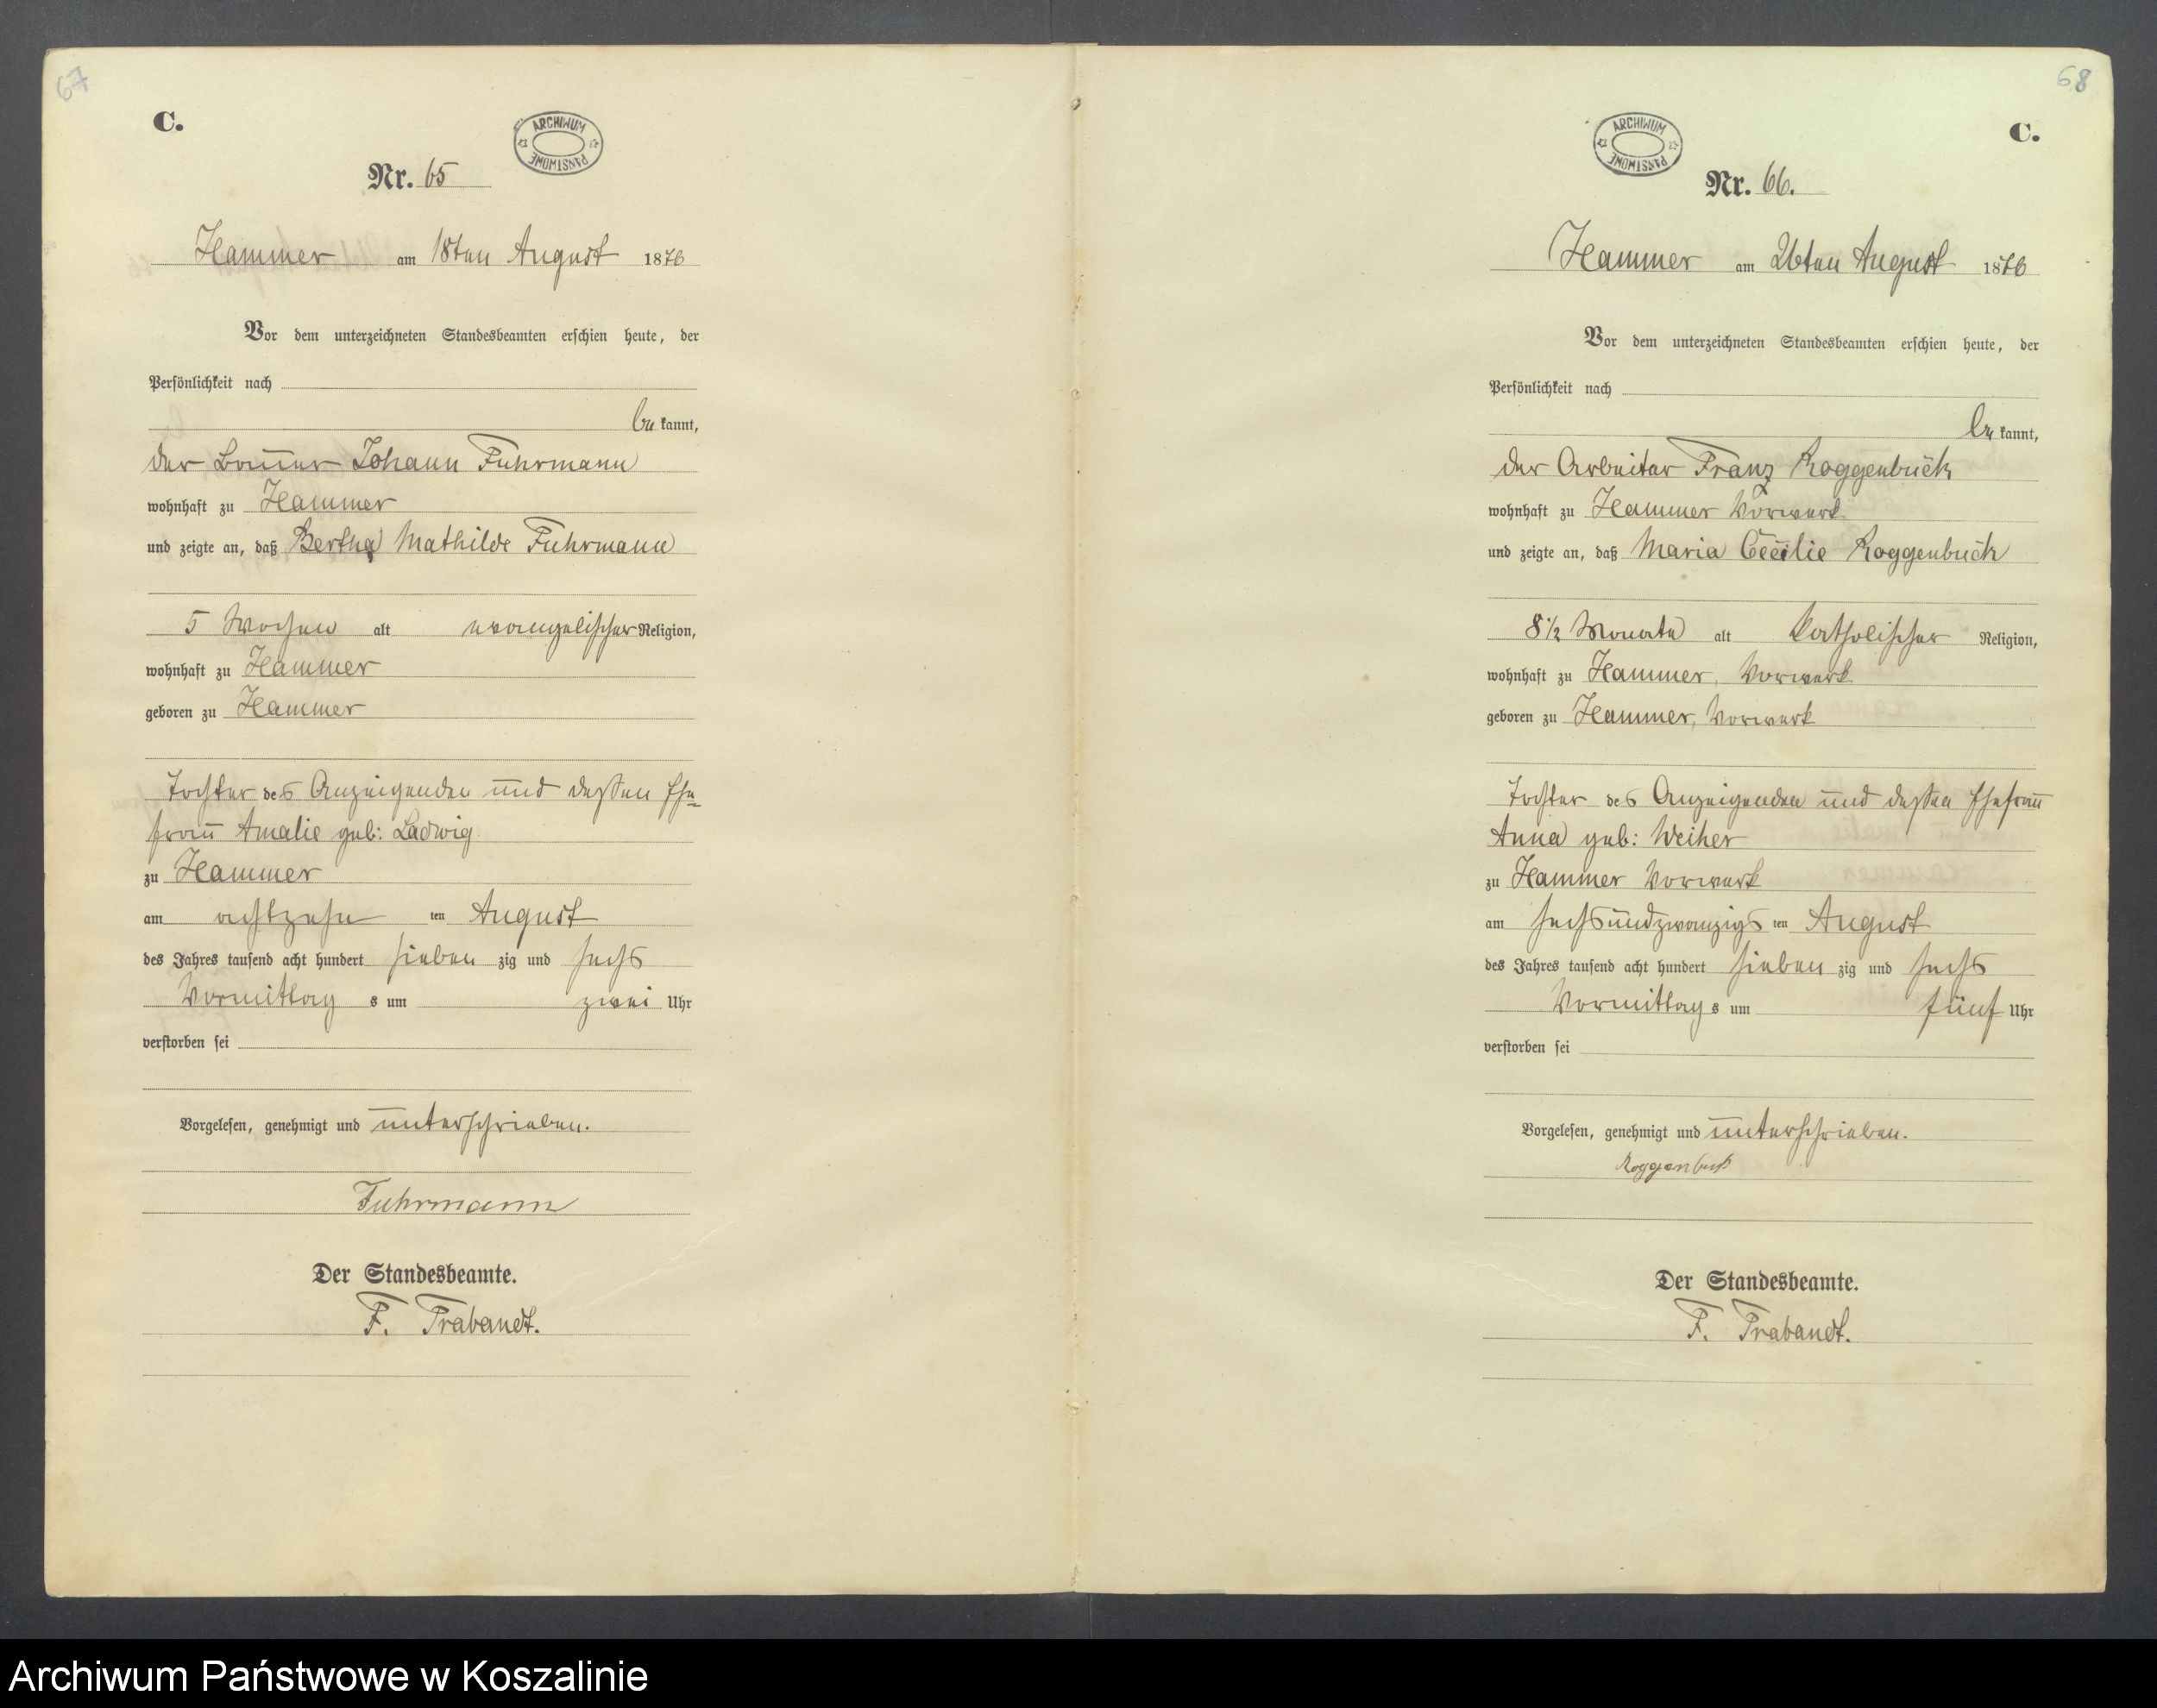 67
C.
ARCHIWUM PAŃSTWOWE
Nr. 65
Hammer am 18ten August 1876
Vor dem unterzeichneten Standesbeamten erschien heute, der
Persönlichkeit nach
be kannt,
der Bauer Johann Fuhrmann
wohnhaft zu Hammer
und zeigte an, daß Bertha Mathilde Fuhrmann
5 Wochen alt evangelischer Religion,
wohnhaft zu Hammer
geboren zu Hammer
Tochter des Anzeigenden und dessen Ehe-
frau Amalie geb: Ladwig
zu Hammer
am achtzehn ten August
des Jahres tausend acht hundert sieben zig und sechs
Vormittag s um zwei Uhr
verstorben sei
Vorgelesen, genehmigt und unterschrieben.
Fuhrmann
Der Standesbeamte.
F. Trabandt.
68
C.
ARCHIWUM PAŃSTWOWE
Nr. 66.
Hammer am 26ten August 1876
Vor dem unterzeichneten Standesbeamten erschien heute, der
Persönlichkeit nach
be kannt,
der Arbeiter Franz Roggenbuck
wohnhaft zu Hammer Vorwerk
und zeigte an, daß Maria Cecilie Roggenbuck
8 1/2 Monate alt katholischer Religion,
wohnhaft zu Hammer, Vorwerk
geboren zu Hammer, Vorwerk
Tochter des Anzeigenden und dessen Ehefrau
Anna geb: Weiher
zu Hammer Vorwerk
am sechsundzwanzigs ten August
des Jahres tausend acht hundert sieben zig und sechs
Vormittag s um fünf Uhr
verstorben sei
Vorgelesen, genehmigt und unterschrieben.
Roggenbuk
Der Standesbeamte.
F. Trabandt.
Archiwum Państwowe w Koszalinie